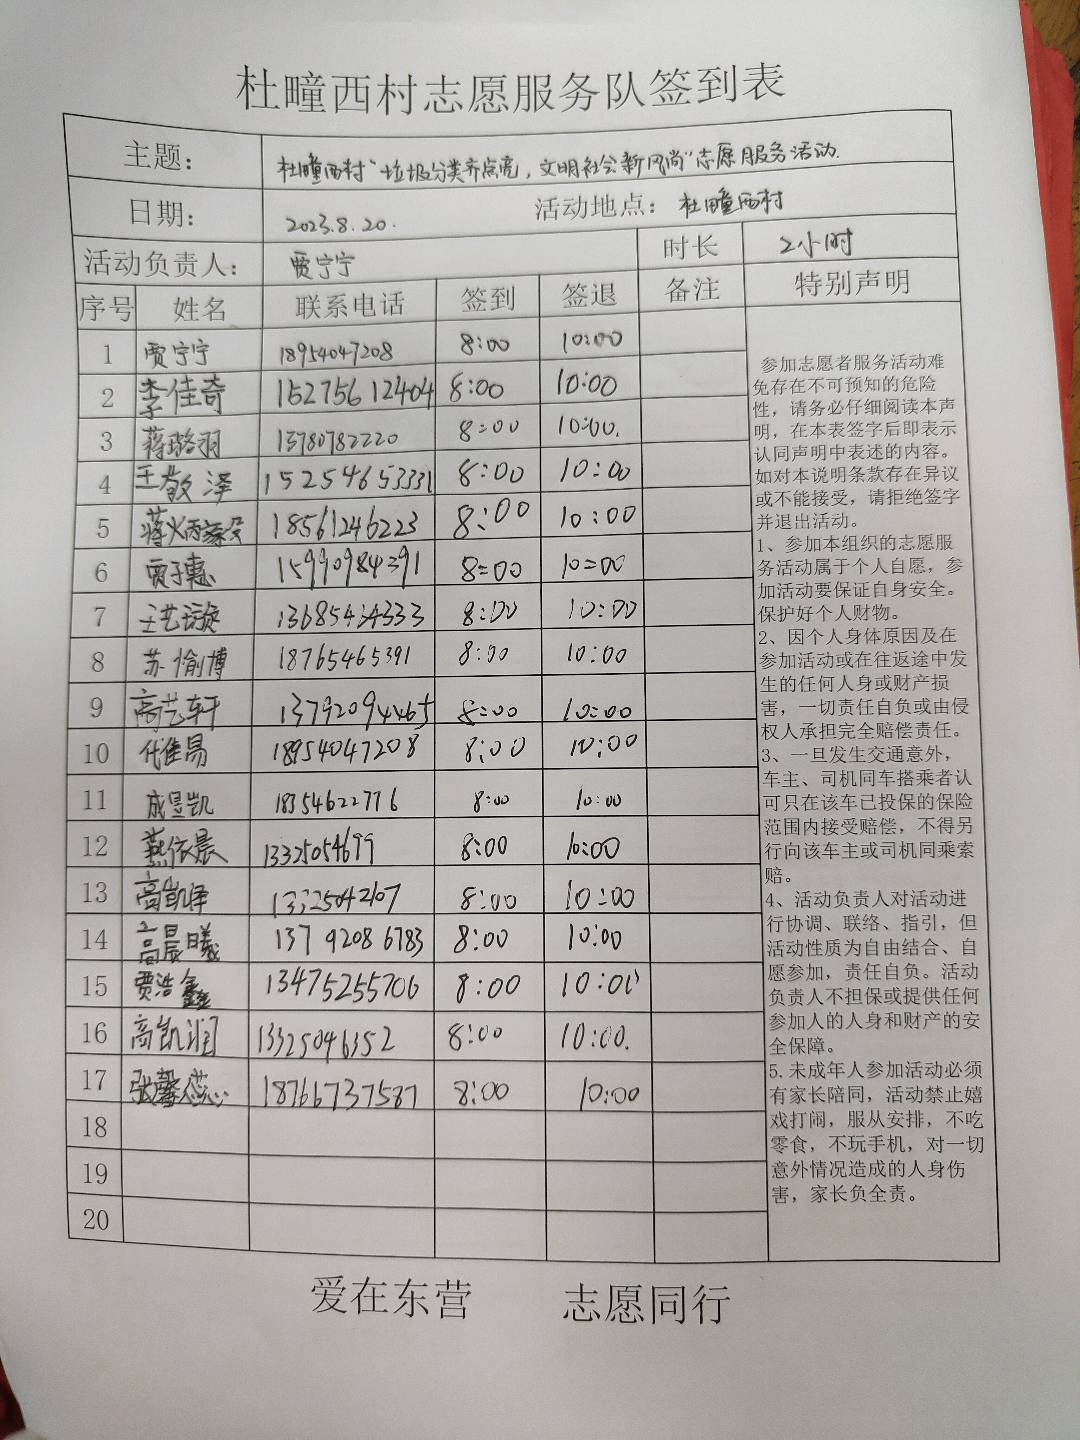 杜疃西村志愿服务队签到表
主题： 杜疃西村“垃圾分类齐点亮，文明社会新风尚”志愿服务活动.
日期： 2023.8.20. 活动地点： 杜疃西村
活动负责人： 贾宁宁 时长 2小时
序号 姓名 联系电话 签到 签退 备注 特别声明
1 贾宁宁 18954047208 8:00 10:00
2 李佳奇 152756 12404 8:00 10:00
3 蒋璐羽 13780782220 8:00 10:00.
4 王敬泽 15254653331 8:00 10:00
5 18561246223 8:00 10:00
6 贾子惠 15990984391 8:00 10:00
7 王艺璇 13685434333 8:00 10:00
8 苏愉博 18765465391 8:00 10:00
9 高艺轩 13792094465 8:00 10:00
10 代佳易 18954047208 8:00 10:00
11 成昱凯 18354622776 8:00 10:00
12 燕依晨 13325054699 8:00 10:00
13 高凯泽 13325042107 8:00 10:00
14 高晨曦 137 9208 6783 8:00 10:00
15 贾浩鑫 13475255706 8:00 10:00
16 高凯润 13325046352 8:00 10:00.
17 张馨蕊 18766737587 8:00 10:00
18
19
20
参加志愿者服务活动难
免存在不可预知的危险
性，请务必仔细阅读本声
明，在本表签字后即表示
认同声明中表述的内容。
如对本说明条款存在异议
或不能接受，请拒绝签字
并退出活动。
1、参加本组织的志愿服
务活动属于个人自愿，参
加活动要保证自身安全。
保护好个人财物。
2、因个人身体原因及在
参加活动或在往返途中发
生的任何人身或财产损
害，一切责任自负或由侵
权人承担完全赔偿责任。
3、一旦发生交通意外，
车主、司机同车搭乘者认
可只在该车已投保的保险
范围内接受赔偿，不得另
行向该车主或司机同乘索
赔。
4、活动负责人对活动进
行协调、联络、指引，但
活动性质为自由结合、自
愿参加，责任自负。活动
负责人不担保或提供任何
参加人的人身和财产的安
全保障。
5.未成年人参加活动必须
有家长陪同，活动禁止嬉
戏打闹，服从安排，不吃
零食，不玩手机，对一切
意外情况造成的人身伤
害，家长负全责。
爱在东营 志愿同行